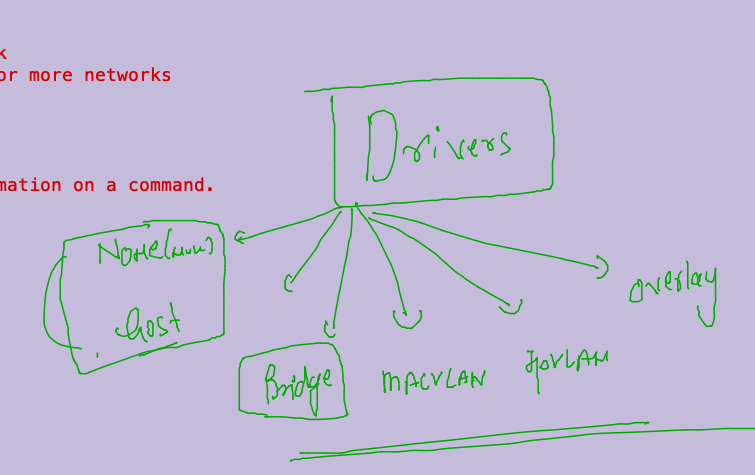 k
or more networks
mation on a command.
Drivers
None(null)
host
overlay
Bridge
MACVLAN
IPVLAN